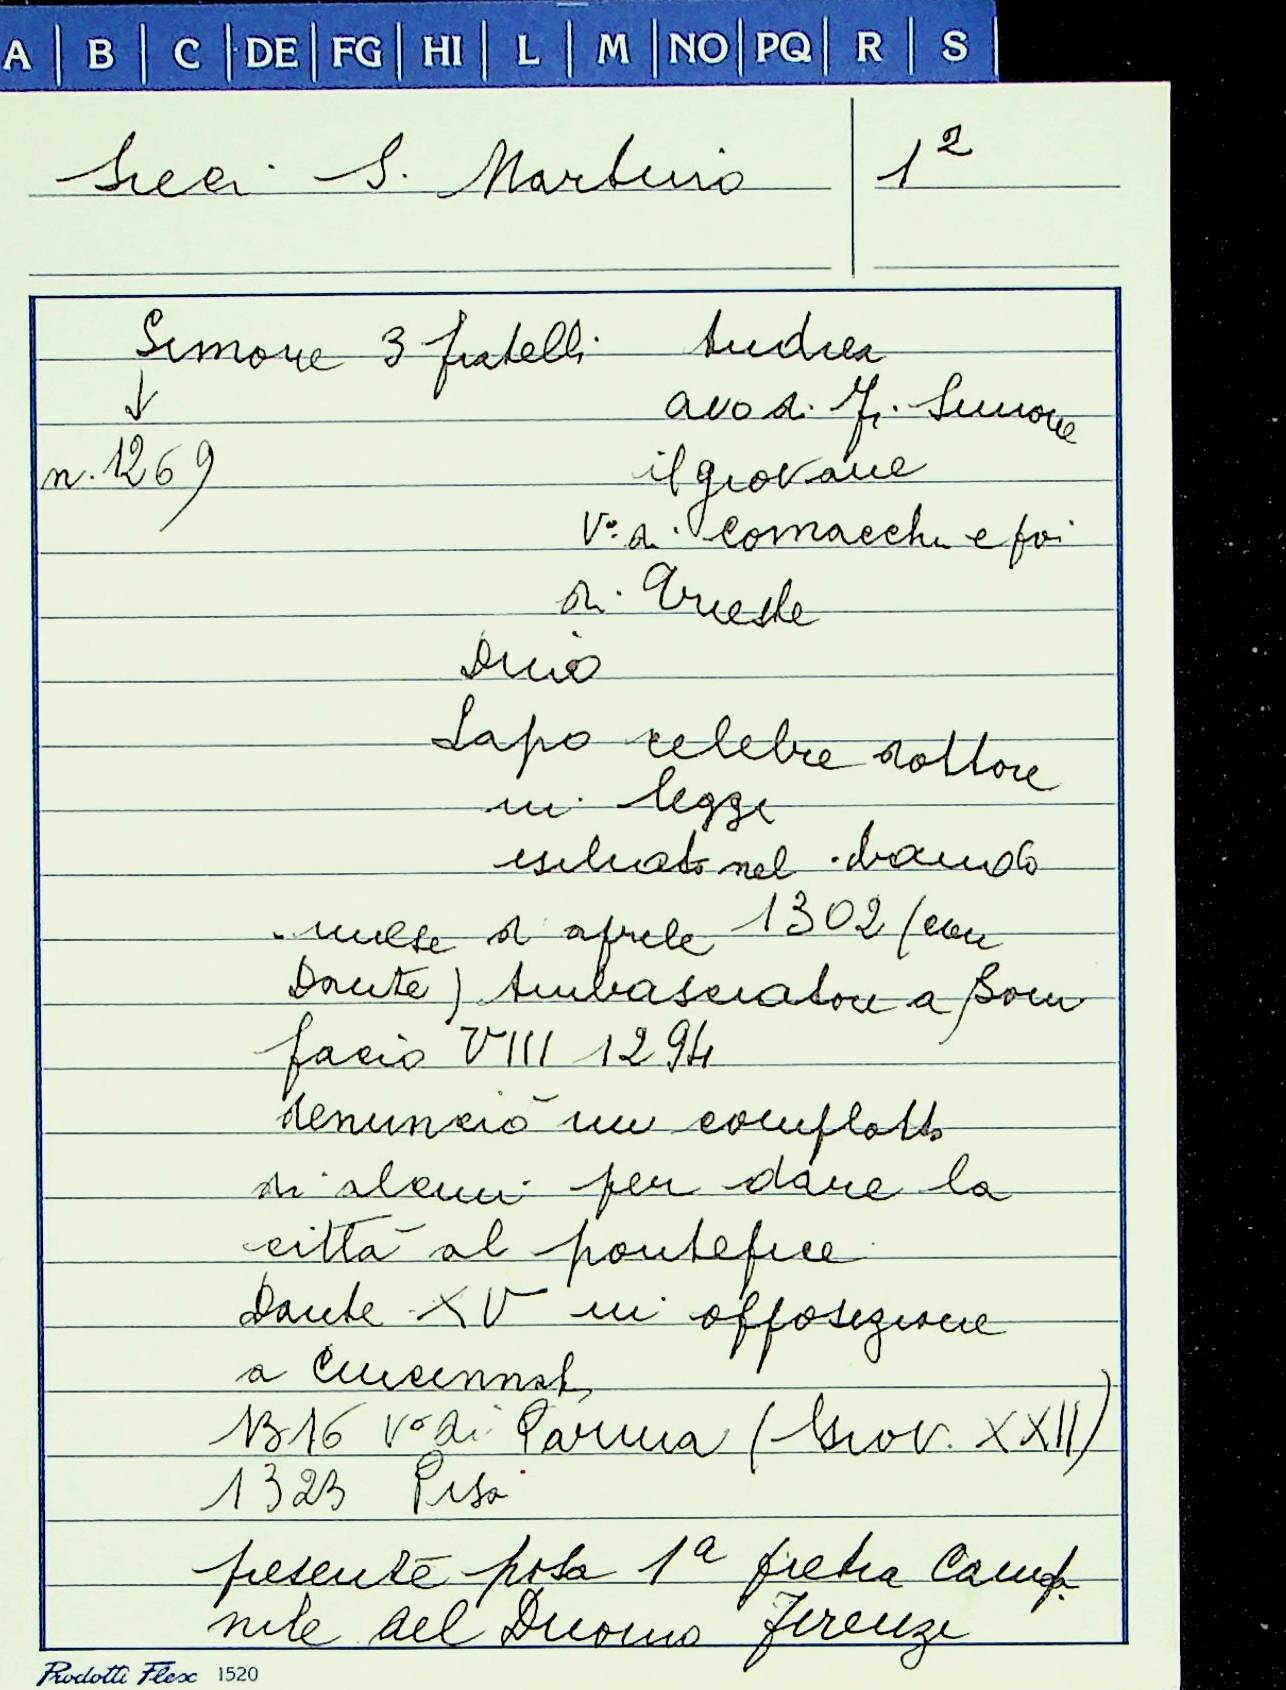 A B C DE FG HI L M NO PQ R S
Sieci S. Martino 1²
Simone 3 fratelli Andrea
↓ avo di Fr. Simone
n. 1269 il giovane
V° di Comacchio e poi
di Trieste
Dino
Lapo celebre dottore
in leggi
esiliato nel bando
mese di aprile 1302 (con
Dante) Ambasciatore a Boni
facio VIII 1294
denunciò un complotto
di alcuni per dare la
città al pontefice
Dante XV in opposizione
a Cincinnato
1316 V° di Parma (Giov. XXII)
1323 Pisa
presente posa 1ª pietra Campa
nile del Duomo Firenze
Prodotti Flex 1520